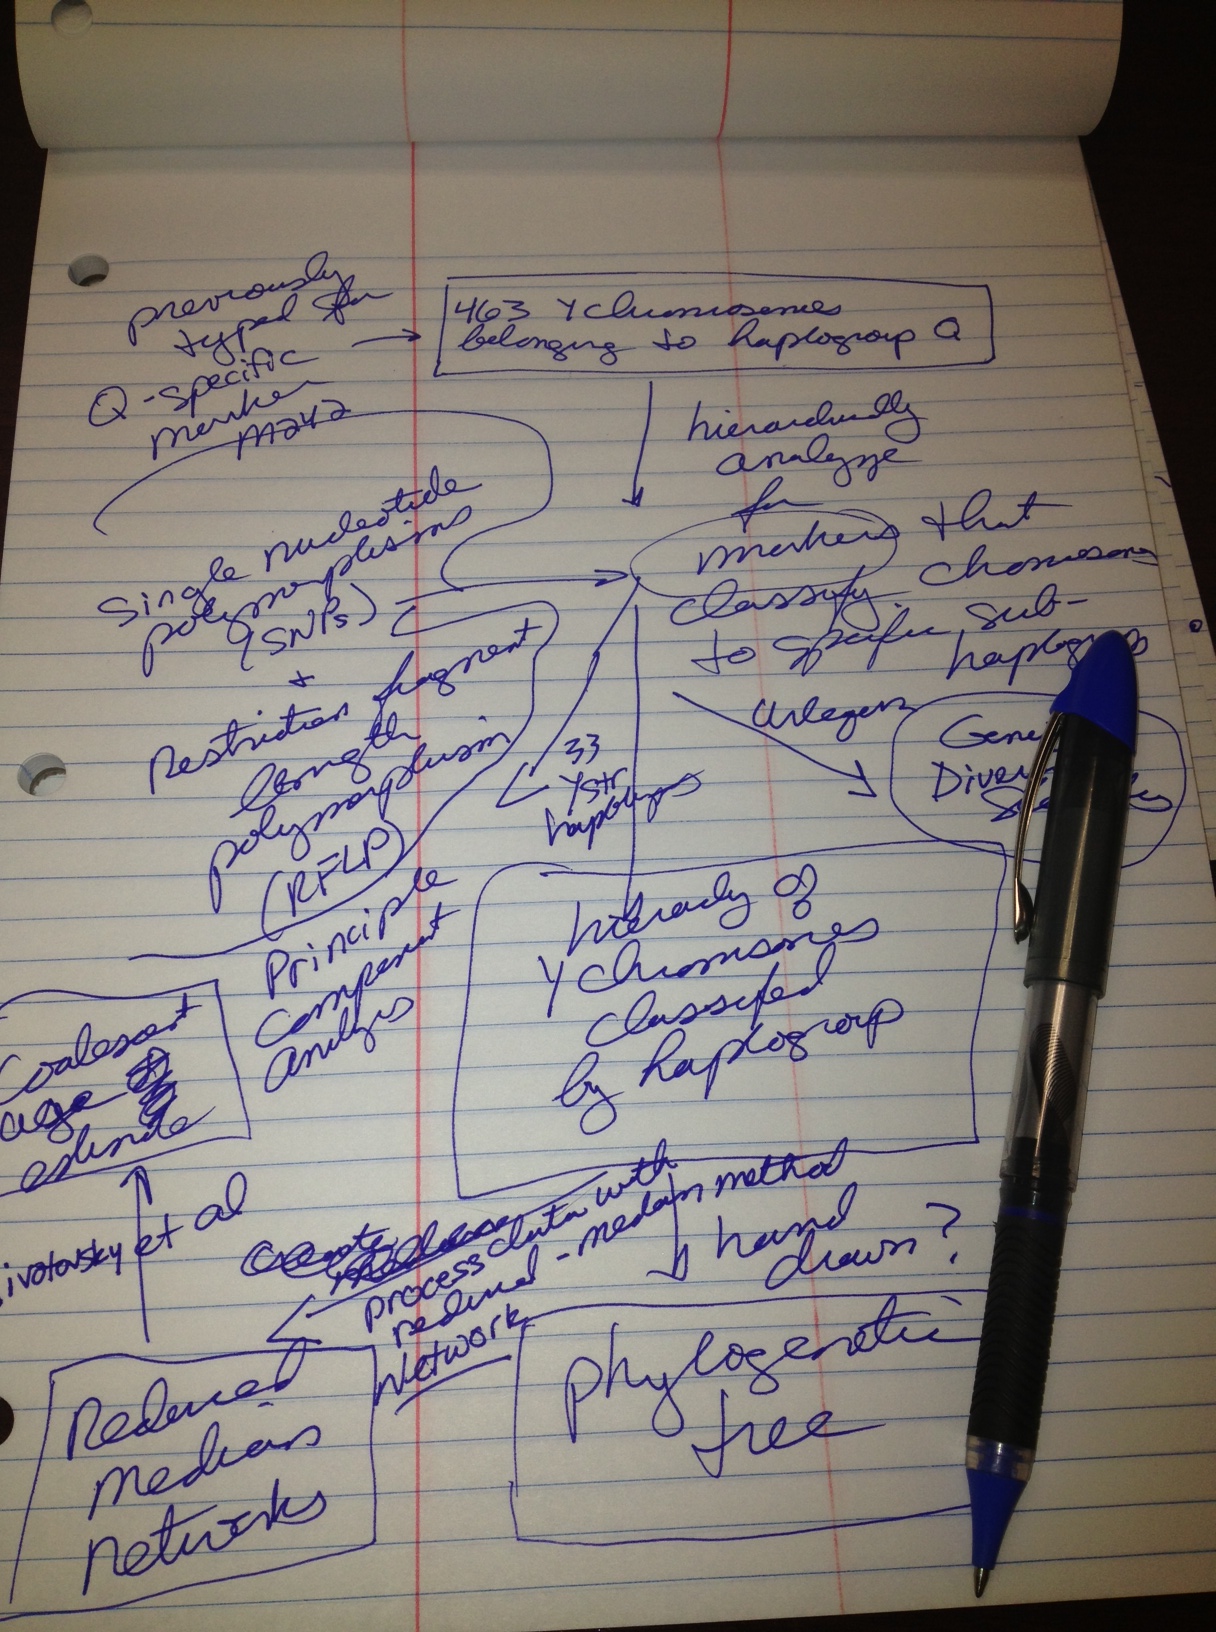 previously
typed for
Q-specific
marker
M242
463 Y chromosomes
belonging to haplogroup Q
hierarchically
analyze
for
markers that
classify chomosomes
to specific sub-
haplogroups
Single nucleotide
polymorphisms
(SNPs)
+
Restriction fragment
length
polymorphism
(RFLP)
33
Ystr
haplotypes
Arlequin
Gene
Diver
Principle
Component
Analysis
hierachy of
Y chromsomes
classified
by haplogroup
Coalescent
age
estimate
ivotovsky et al
Create
process data with
reduced-median method
Network
hand
drawn?
Reduced
Median
Networks
phylogenetic
tree